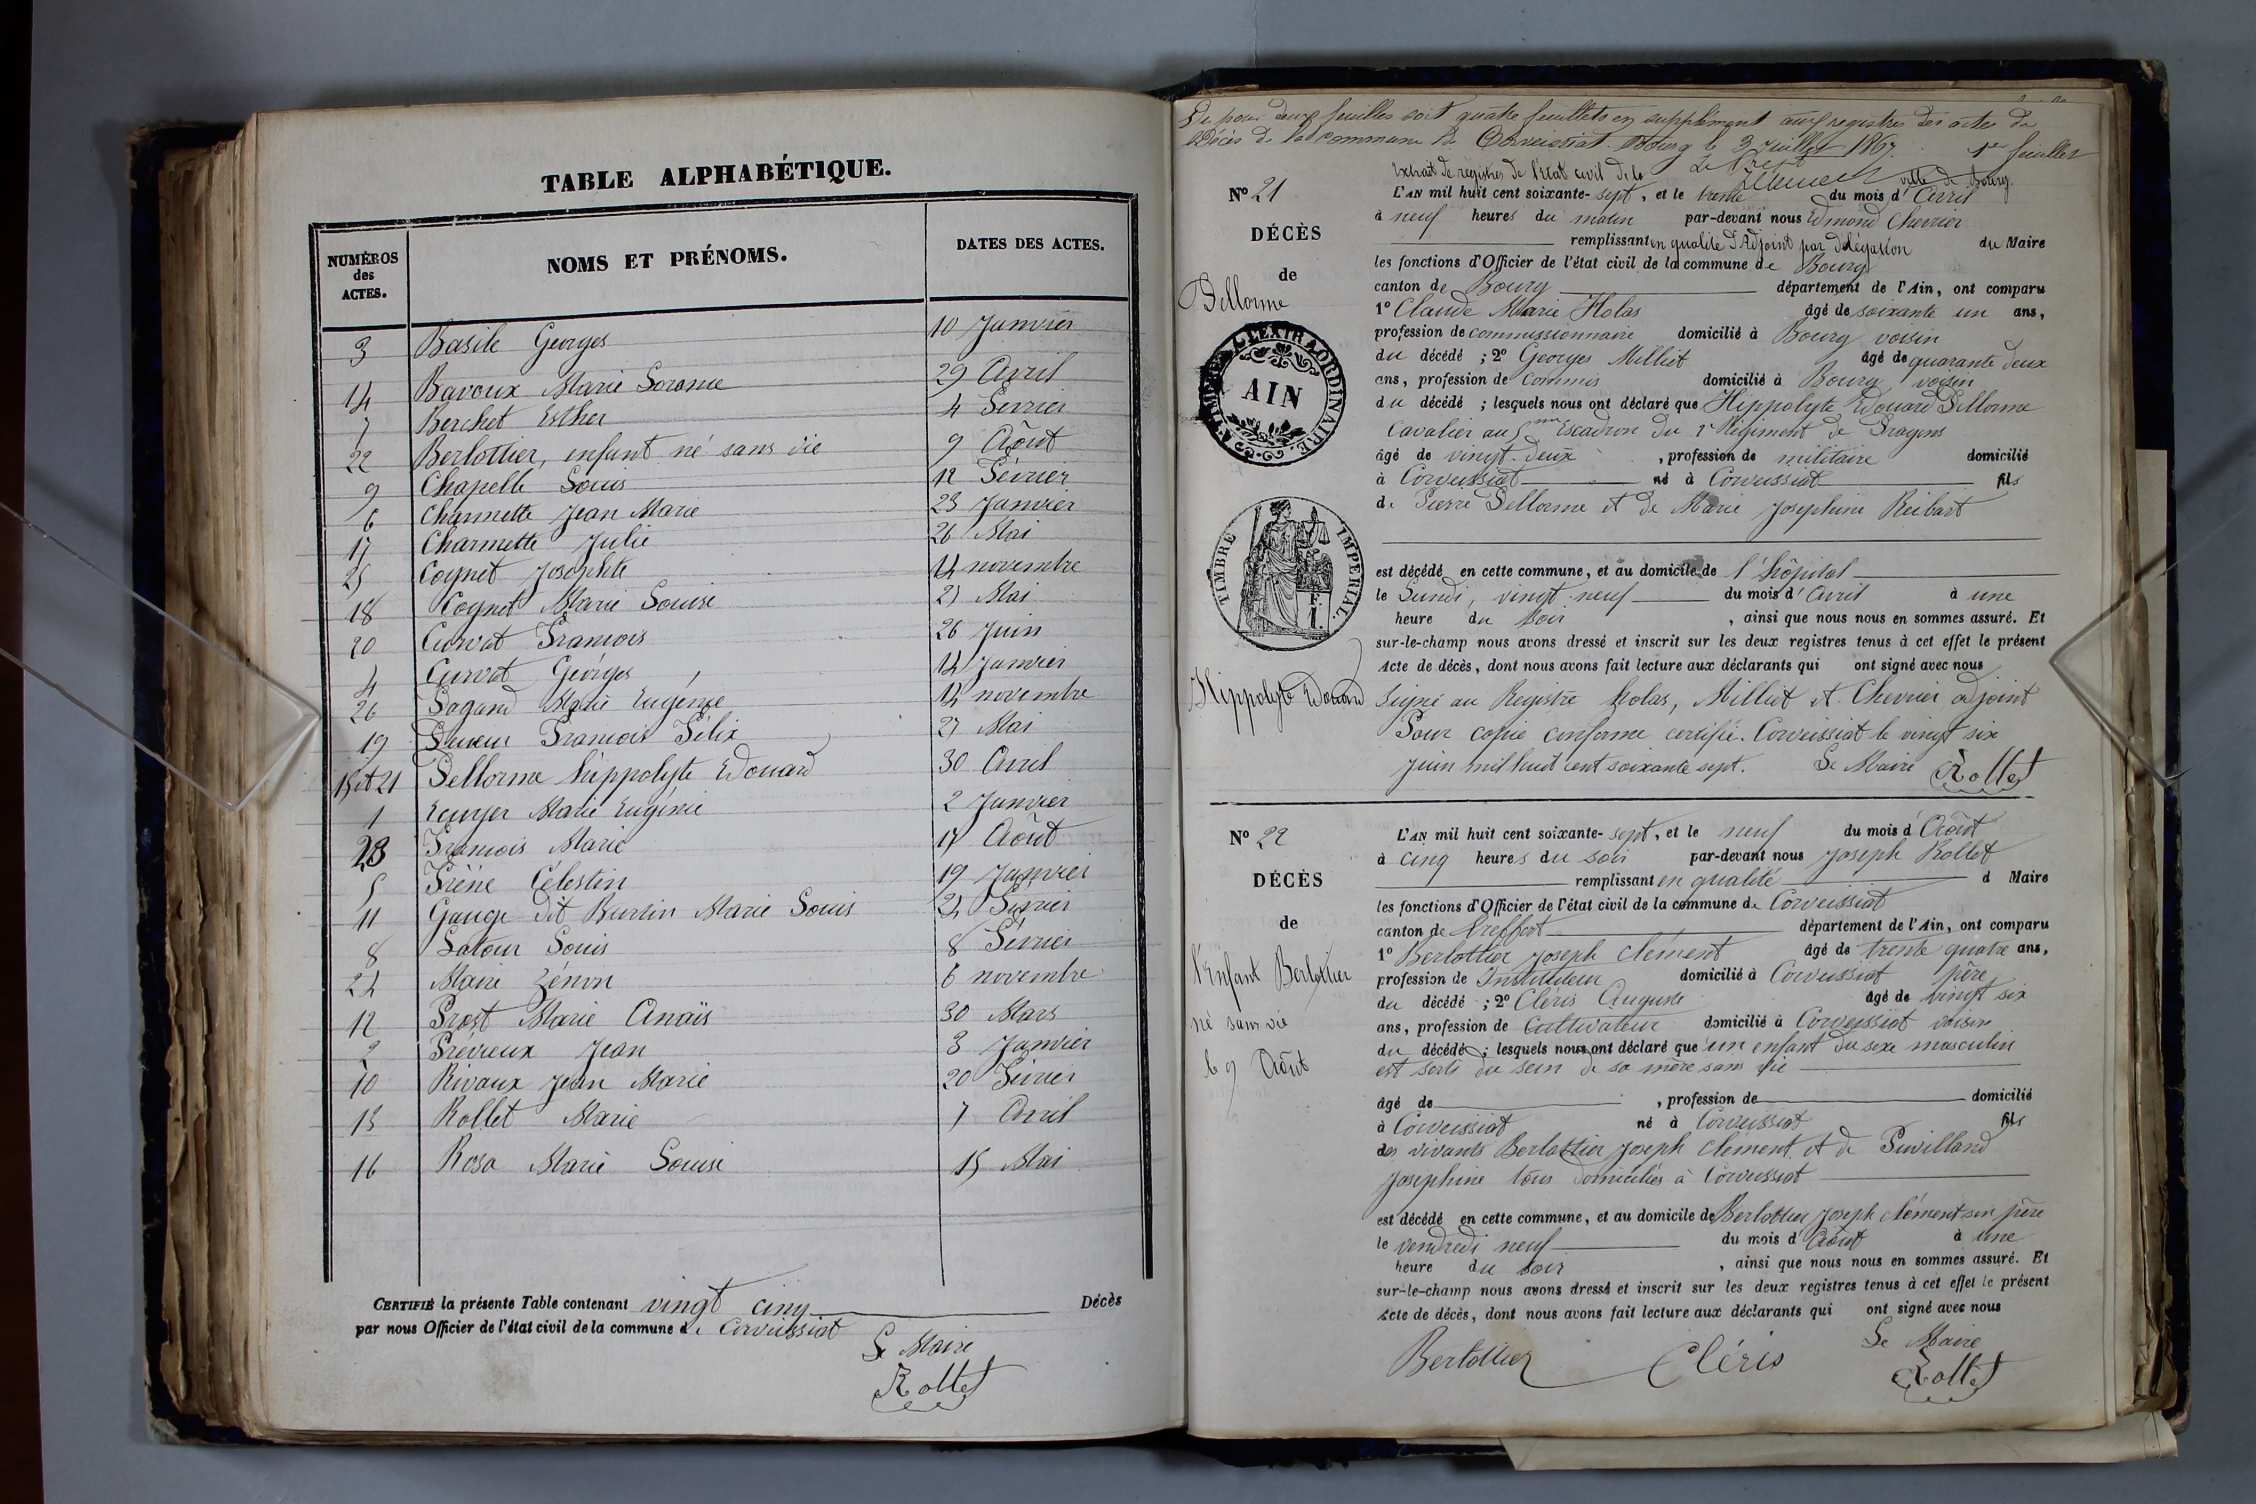 TABLE ALPHABÉTIQUE.
NUMÉROS des ACTES.
NOMS ET PRÉNOMS.
DATES DES ACTES.
3 Basile Georges 10 Janvier
14 Bavoux Marie 29 Avril
7 Berchet Esther 4 Février
22 Berlottier, enfant né sans vie 9 Août
9 Chapelle Louis 12 Février
6 Charmette Jean Marie 23 Janvier
17 Charmette Julie 26 Mai
25 Coynet Josephte 14 novembre
18 Coynet Marie Louise 27 Mai
20 Curvat François 26 Juin
4 Curvat Georges 14 Janvier
26 Dagand Marie Eugénie 14 novembre
19 François Félix 27 Mai
15 et 21 Dellorme hippolyte Edouard 30 Avril
1 Ecuyer Marie Eugénie 2 Janvier
23 François Marie 17 Août
5 Frène Célestin 19 Janvier
11 Gauge dit Burtin Marie Louis 27 Février
8 Latour Louis 8 Février
24 Maire Zénon 6 novembre
12 Prost Marie Anaïs 30 Mars
2 Prévieux Jean 3 Janvier
10 Rivaux Jean Marie 20 Février
13 Rollet Marie 7 Avril
16 Rosa Marie Louise 15 Mai
CERTIFIÉ la présente Table contenant vingt cinq Décès
par nous Officier de l'état civil de la commune de Corveissiat
Le Maire
Rollet
Vu pour deux feuilles soit quatre feuillets en supplément aux registres des actes de
Décès de la commune de Corveissiat. Bourg le 3 Juillet 1867. 1er feuillet
Le Préfet
Extrait de registres de l'état civil de la ville de Bourg.
N° 21
DÉCÈS
de
Dellorme
TIMBRE EXTRAORDINAIRE
AIN
TIMBRE IMPÉRIAL.
Hippolyte Edouard
L'AN mil huit cent soixante-sept, et le trente du mois d'Avril
à neuf heures du matin par-devant nous Edmond Chevrier
remplissant en qualité d'Adjoint par délégation du Maire
les fonctions d'Officier de l'état civil de la commune de Bourg
canton de Bourg département de l'Ain, ont comparu
1° Claude Marie Holas âgé de soixante un ans,
profession de commissionnaire domicilié à Bourg voisin
du décédé ; 2° Georges Milliet âgé de quarante deux
ans, profession de commis domicilié à Bourg voisin
du décédé ; lesquels nous ont déclaré que Hippolyte Edouard Dellorme
Cavalier au 5me Escadron du 1er Régiment de Dragons
âgé de vingt-deux , profession de militaire domicilié
à Corveissiat né à Corveissiat fils
de Pierre Dellorme et de Marie Josephine Reibart
est décédé en cette commune, et au domicile de l'hôpital
le Lundi, vingt-neuf du mois d'Avril à une
heure du soir , ainsi que nous nous en sommes assuré. Et
sur-le-champ nous avons dressé et inscrit sur les deux registres tenus à cet effet le présent
Acte de décès, dont nous avons fait lecture aux déclarants qui ont signé avec nous
signé au Registre holas, Milliet et Chevrier adjoint
Pour copie conforme certifié. Corveissiat le vingt six
juin mil huit cent soixante sept. Le Maire Rollet
N° 22
DÉCÈS
de
l'Enfant Berlottier
né sans vie
le 9 Août
L'AN mil huit cent soixante-sept, et le neuf du mois d'Août
à cinq heures du soir par-devant nous Joseph Rollet
remplissant en qualité d Maire
les fonctions d'Officier de l'état civil de la commune de Corveissiat
canton de Treffort département de l'Ain, ont comparu
1° Berlottier Joseph clément âgé de trente quatre ans,
profession de Instituteur domicilié à Corveissiat père
du décédé ; 2° Cléris Auguste âgé de vingt six
ans, profession de Cultivateur domicilié à Corveissiat voisin
du décédé ; lesquels nous ont déclaré que un enfant du sexe masculin
est sorti du sein de sa mère sans vie
âgé de , profession de domicilié
à Corveissiat né à Corveissiat fils
des vivants Berlottier Joseph clément et de Puvilland
Josephine tous domiciliés à Corveissiat
est décédé en cette commune, et au domicile de Berlottier Joseph clément son père
le vendredi neuf du mois d'Août à une
heure du soir , ainsi que nous nous en sommes assuré. Et
sur-le-champ nous avons dressé et inscrit sur les deux registres tenus à cet effet le présent
Acte de décès, dont nous avons fait lecture aux déclarants qui ont signé avec nous
Berlottier Cléris Le Maire
Rollet